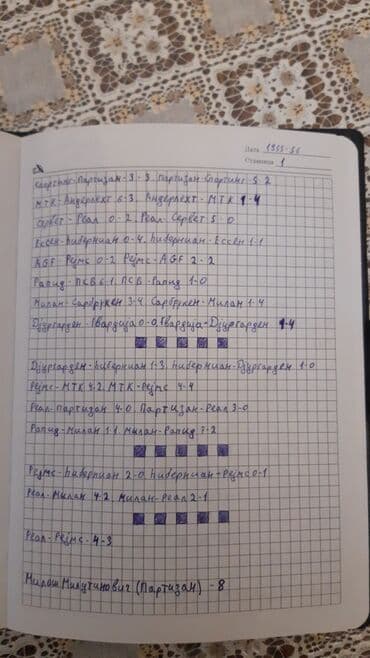 Дата 1955-56
Страница 1
Спортинг-Партизан-3-3, Партизан-Спортинг-5-2
МТК-Андерлехт 6-3, Андерлехт-МТК 1-4
Сервет-Реал 0-2, Реал-Сервет 5-0
Ессен-Хиберниан 0-4, Хиберниан-Ессен 1-1
AGF-Рејмс 0-2, Рејмс-AGF 2-2
Рапид-ПСВ 6-1, ПСВ-Рапид 1-0
Милан-Сарбрукен 3-4, Сарбрукен-Милан 1-4
Дјургарден-Гвардија 0-0, Гвардија-Дјургарден 1-4
Дјургарден-Хиберниан 1-3, Хиберниан-Дјургарден 1-0
Рејмс-МТК 4-2, МТК-Рејмс 4-4
Реал-Партизан 4-0, Партизан-Реал 3-0
Рапид-Милан 1-1, Милан-Рапид 7-2
Рејмс-Хиберниан 2-0, Хиберниан-Рејмс 0-1
Реал-Милан 4-2, Милан-Реал 2-1
Реал-Рејмс-4-3
Милош Милутиновић (Партизан) -8